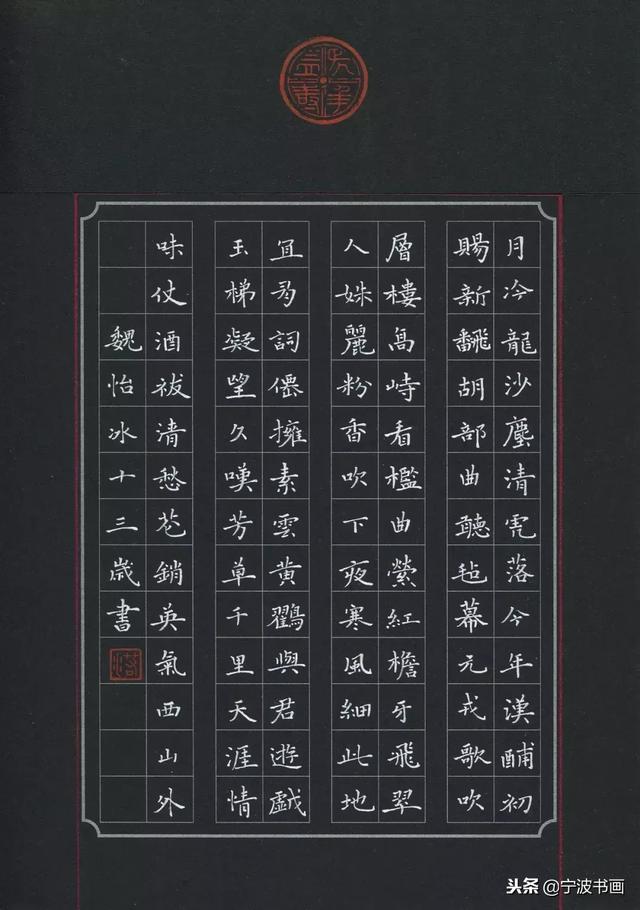 月冷龍沙塵清虎落今年漢酺初
賜新飜胡部曲聽毡幕元戎歌吹
層樓高峙看檻曲縈紅檐牙飛翠
人姝麗粉香吹下夜寒風細此地
宜有詞僊擁素雲黄鶴與君遊戯
玉梯凝望久嘆芳草千里天涯情
味仗酒祓清愁苍銷英氣西山外
魏怡冰十三歲書
头条@宁波书画